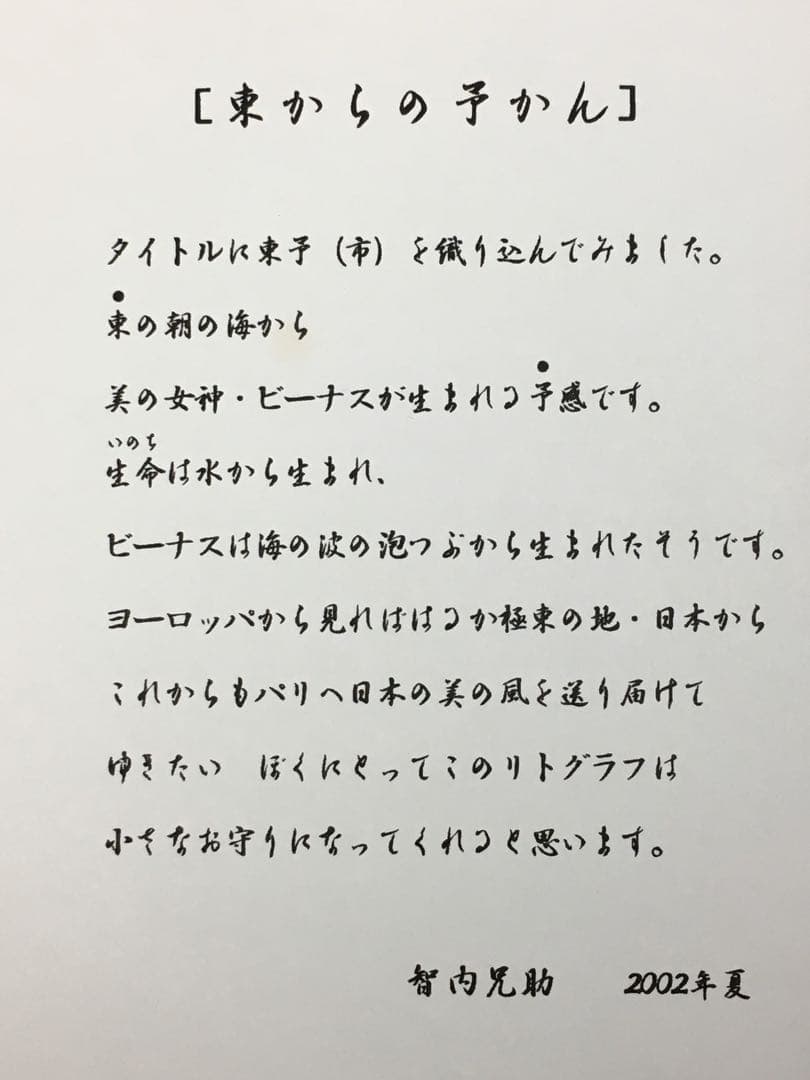 [東からの予かん]
タイトルに東予（市）を織り込んでみました。
東の朝の海から
美の女神・ビーナスが生まれる予感です。
いのち
生命は水から生まれ、
ビーナスは海の波の泡つぶから生まれたそうです。
ヨーロッパから見ればはるか極東の地・日本から
これからもパリへ日本の美の風を送り届けて
ゆきたい　ぼくにとってこのリトグラフは
小さなお守りになってくれると思います。
智内兄助　2002年夏